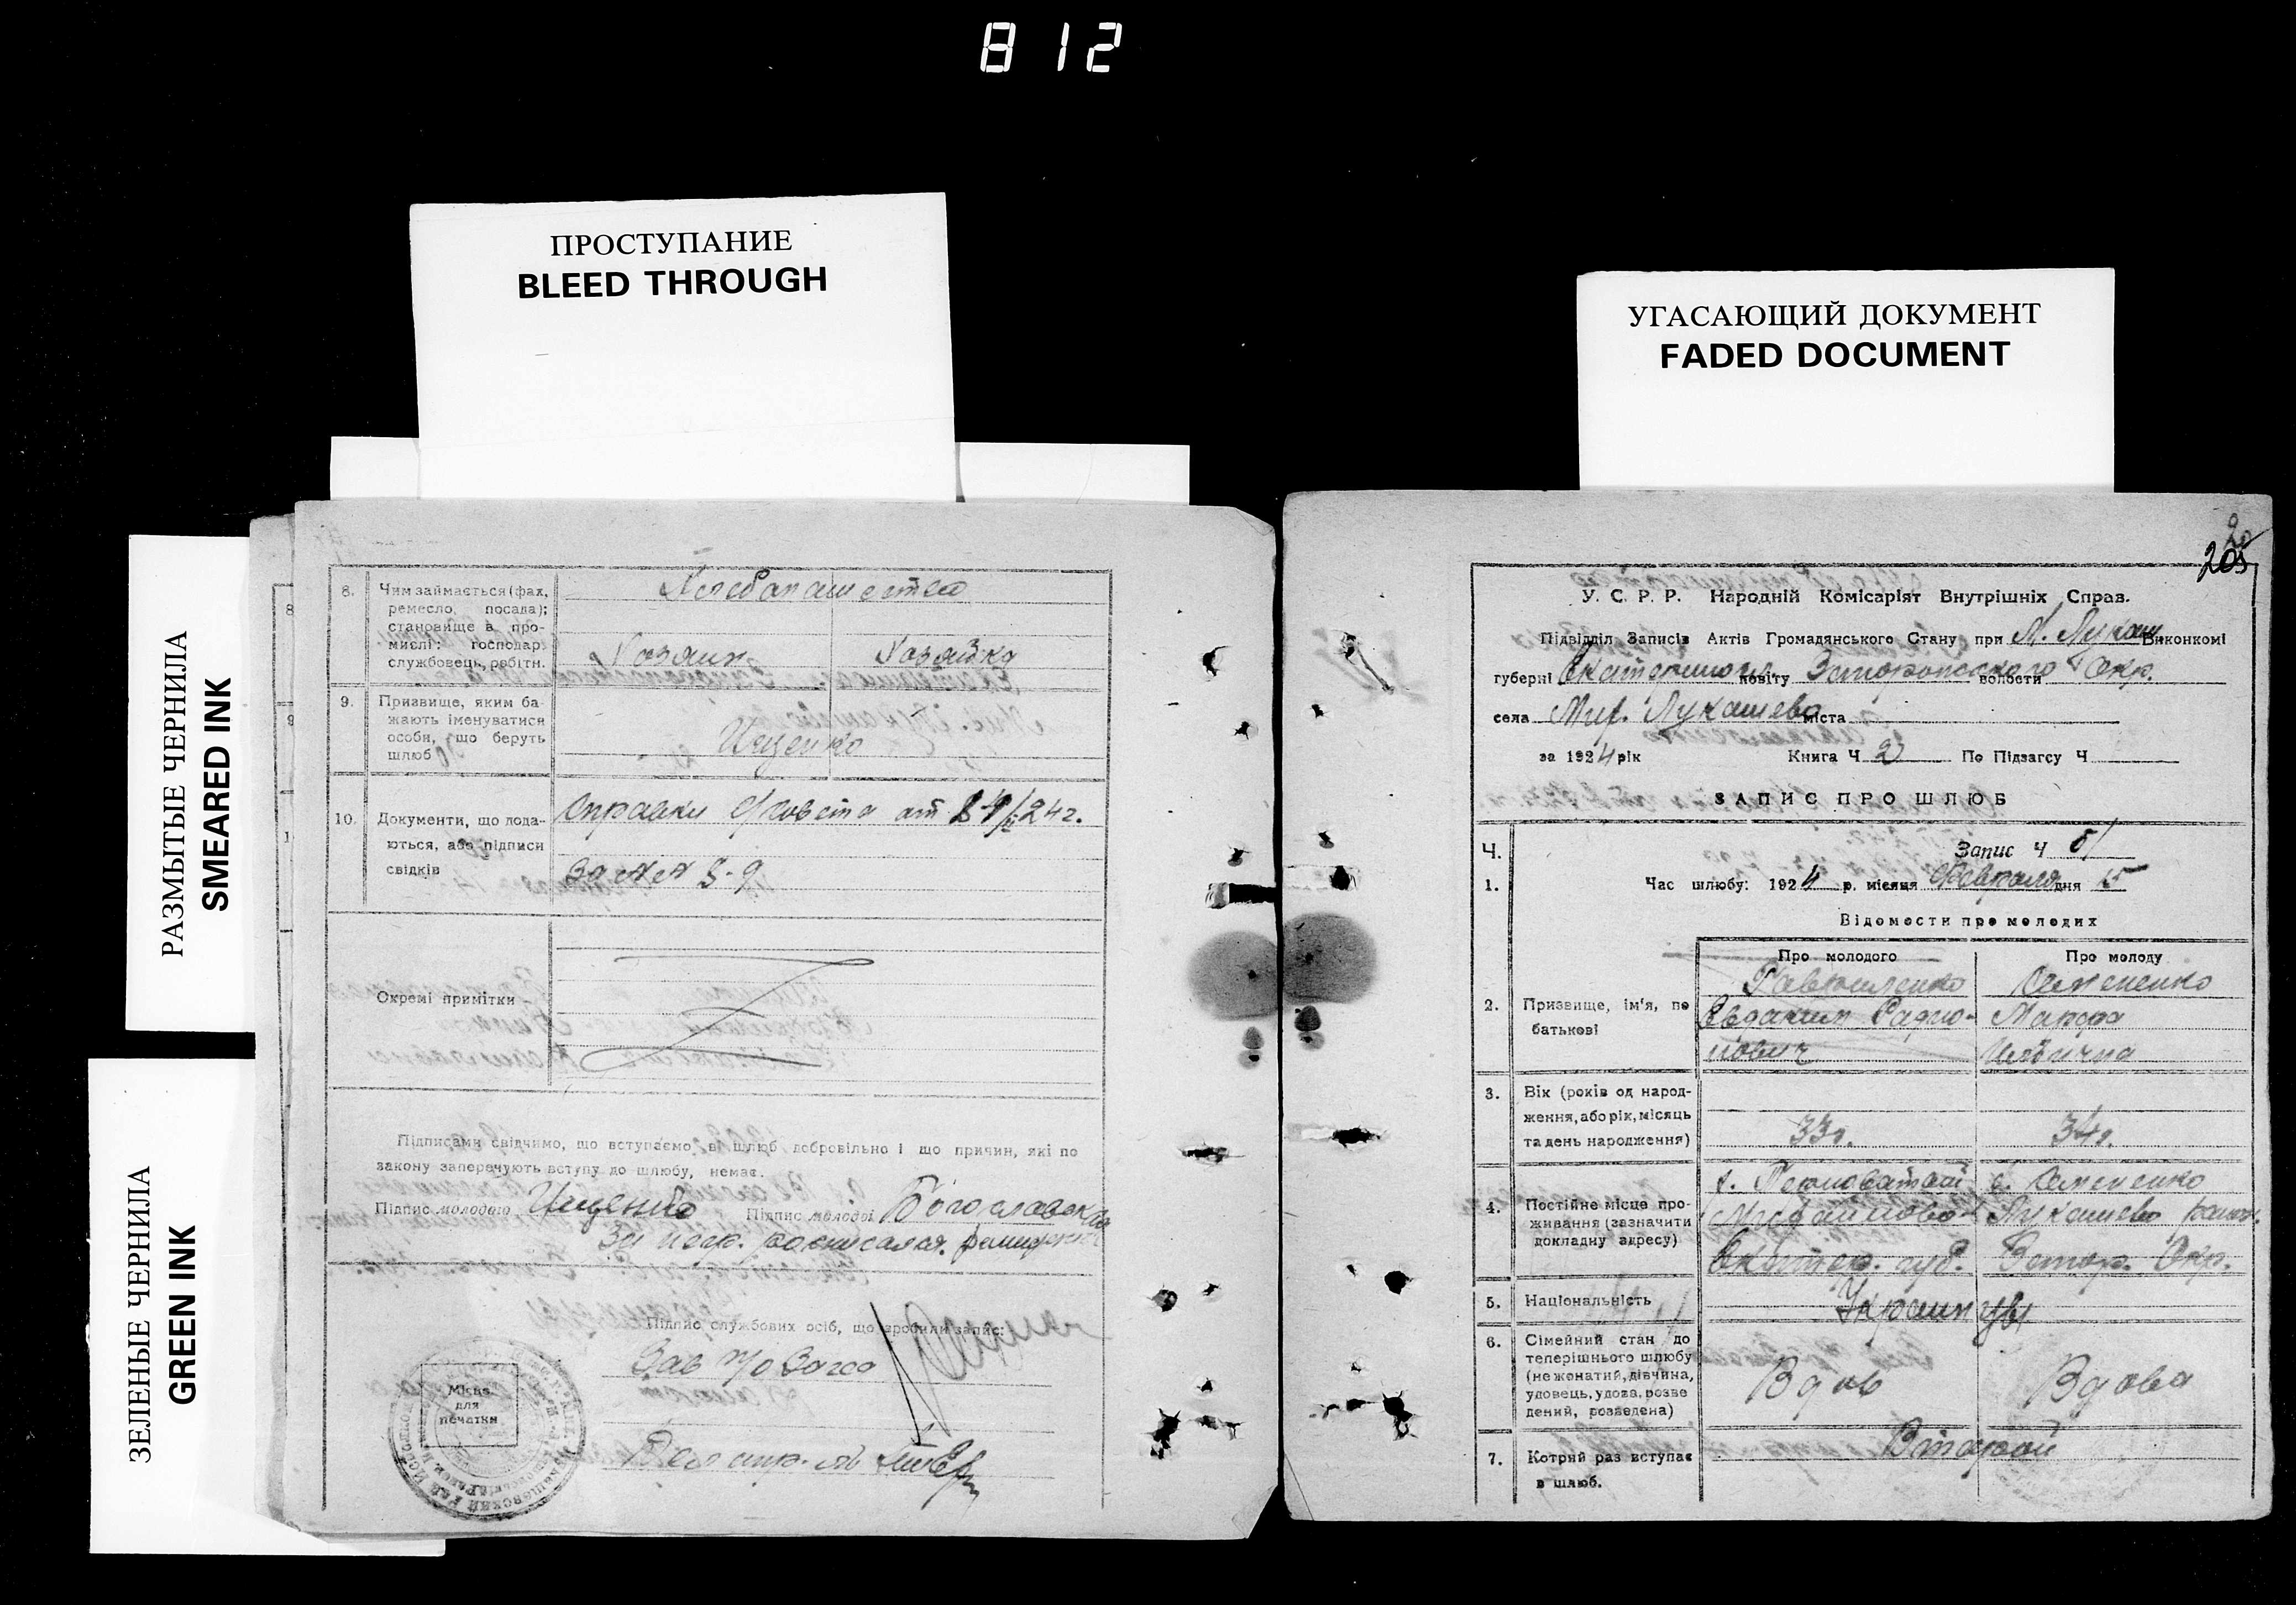 812
ПРОСТУПАНИЕ
BLEED THROUGH
УГАСАЮЩИЙ ДОКУМЕНТ
FADED DOCUMENT
РАЗМЫТЫЕ ЧЕРНИЛА
SMEARED INK
ЗЕЛЕНЫЕ ЧЕРНИЛА
GREEN INK
8. Чим займається (фах,
ремесло, посада);
становище в про-
мислі: господар,
службовець, робітн.
Хлебопашество
Хозяин Хозяйка
9. Призвище, яким ба-
жають іменуватися
особи, що беруть
шлюб
Ищенко
10. Документи, що пода-
ються, або підписи
свідків
Справки с/совета от 24г.
за №№ 8-9
Окремі примітки
Підписами свідчимо, що вступаємо в шлюб добровільно і що причин, які по
закону заперечують вступу до шлюбу, немає.
Підпис молодого Ищенко Підпис молодої Богославск
За негр.
Підпис службових осіб, що зробили запис:
Зав п/о Загса
Місце
для
печатки
20
203
У. С. Р. Р. Народній Комісаріят Внутрішніх Справ.
Підвідділ Записів Актів Громадянського Стану при М. Лукаш. Виконкомі
губерні Екатеринослав. повіту Запорожского волости Окр.
села Мих. Лукашево міста
за 1924 рік Книга Ч 2 По Підзагсу Ч
ЗАПИС ПРО ШЛЮБ
Ч. Запис Ч
1. Час шлюбу: 1924 р. місяця Февраля дня 15
Відомости про молодих
Про молодого Про молоду
2. Призвище, ім'я, по
батькові
Гавриленко Семененко
Евдоким Радио- Мавра
нович Ильинична
3. Вік (років од народ-
ження, або рік, місяць
та день народження)
33г. 34г.
4. Постійне місце про-
живання (зазначити
докладну адресу)
с. Семененко
Михайлово- Лукашево район.
Екатер. губ. Запор. Окр.
5. Національність
Украинцы
6. Сімейний стан до
теперішнього шлюбу
(не жонатий, дівчина,
удовець, удова, розве
дений, розведена)
Вдов Вдова
7. Котрий раз вступає
в шлюб.
Второй